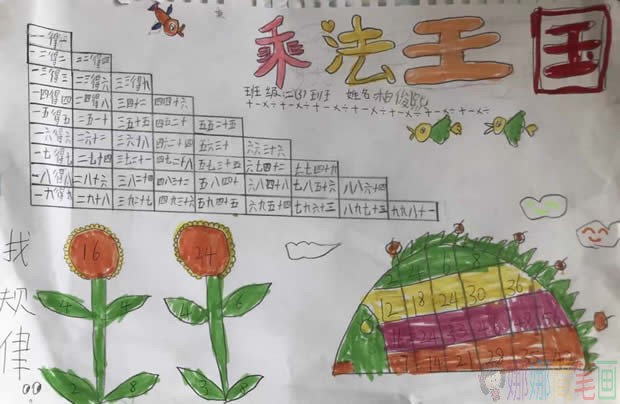 乘法王国
班级二(3)班 姓名
+-×÷+-×÷+-×÷+-×÷+-×÷+-×÷
一一得一
一二得二 二二得四
一三得三 二三得六 三三得九
一四得四 二四得八 三四十二 四四十六
一五得五 二五一十 三五十五 四五二十 五五二十五
一六得六 二六十二 三六十八 四六二十四 五六三十 六六三十六
一七得七 二七十四 三七二十一 四七二十八 五七三十五 六七四十二 七七四十九
一八得八 二八十六 三八二十四 四八三十二 五八四十 六八四十八 七八五十六 八八六十四
一九得九 二九十八 三九二十七 四九三十六 五九四十五 六九五十四 七九六十三 八九七十二 九九八十一
找规律
16
4 4
2 8
24
4 6
3 8
12 18 24 30 36
14 21 28 35 42
娜娜 笔画